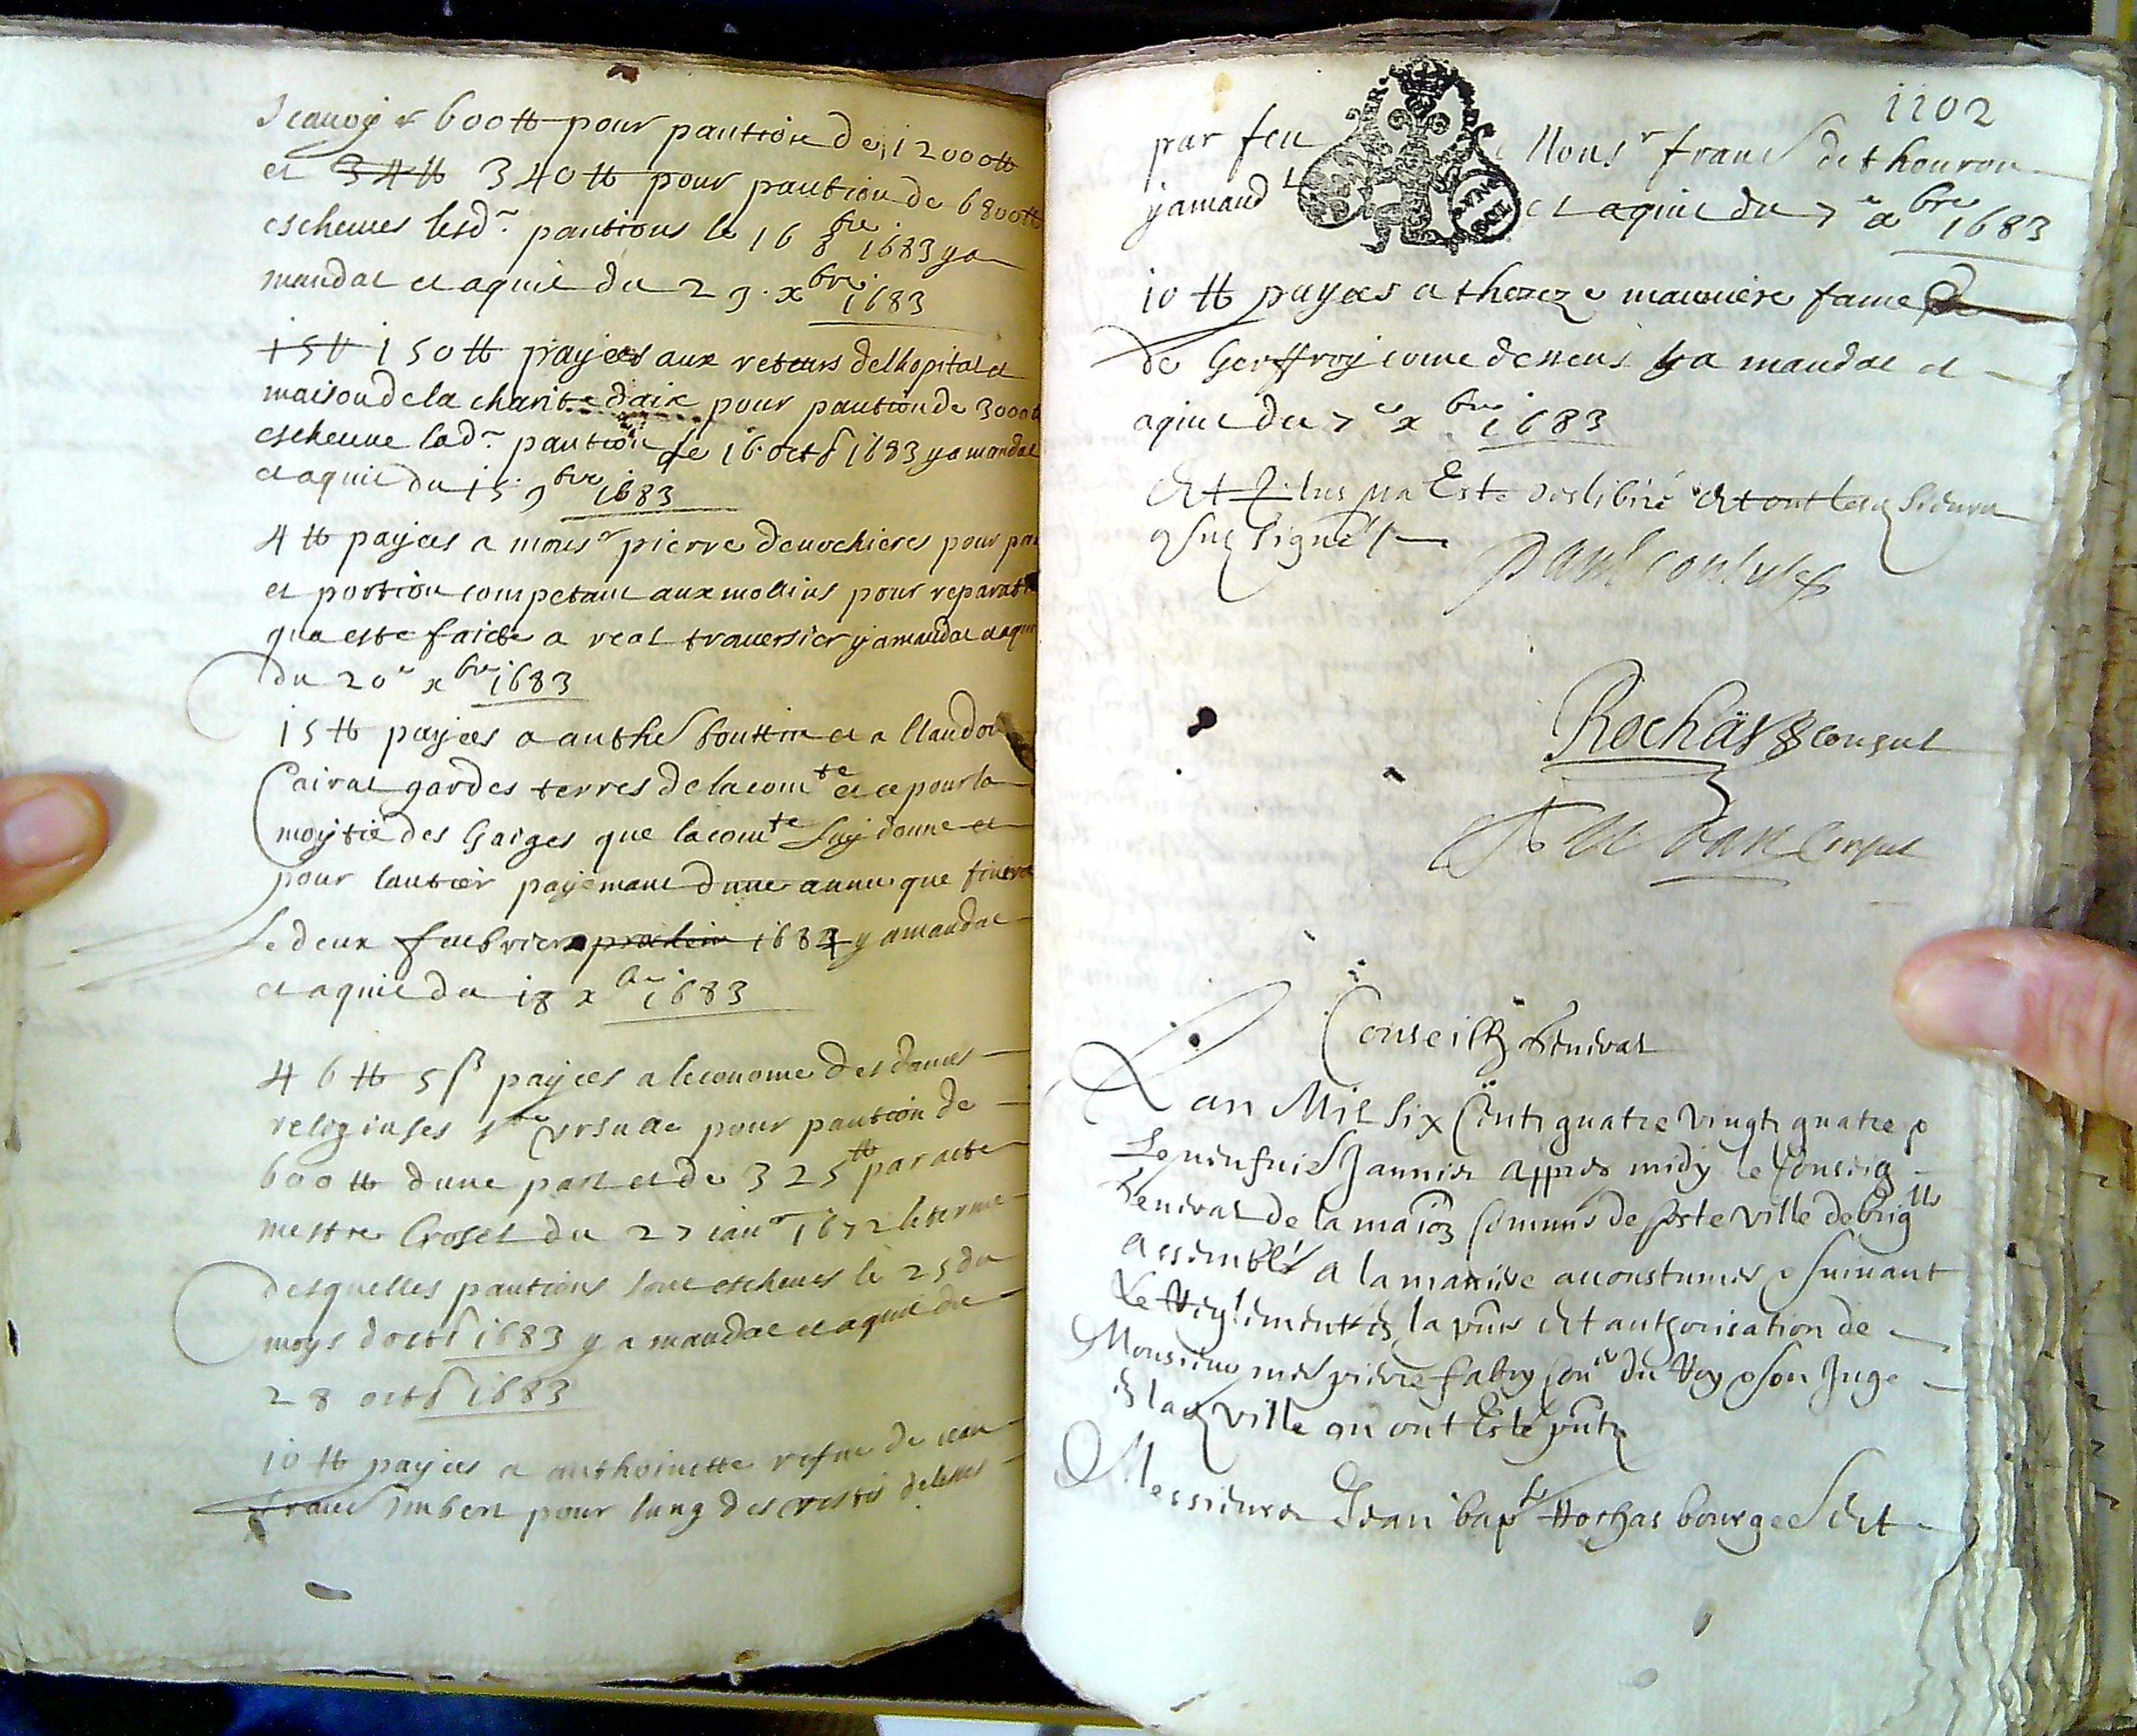 Scavoyr 600 ₶ pour pantion de 12000 ₶
et 34 ₶ 340 ₶ pour pantion de 6800 ₶
escheues lesd. pantions le 16 8bre 1683 y a
mandat et aquit du 29. xbre 1683
15 ₶ 150 ₶ payées aux reteurs de lhopital et
maison de la charite daix pour pantion de 3000 ₶
escheue lad. pantion le 16 octb 1683 y a mandat
et aquit du 15. 9bre 1683
4 ₶ payées a monsr pierre devochieres pour par
et portion competant aux mollins pour reparatio
qua este faicte a real traversier y a mandat et aquit
du 20e xbre 1683
15 ₶ payées a anthe bouttin et a Claudou
Cairat gardes terres de la comte et ce pour la
moytié des Gaiges que la comte luy donne et
pour lantier payemant dune annee que finera
le deux feubvier prochein 1684 y a mandat
et aquit du 18 xbre 1683
46 ₶ 5 s payées a leconome des dames
religiuses ste Ursulle pour pantion de
600 ₶ dune part et de 325 ₶ par acte
mettre Croset du 27 ianr 1672 le terme
desquelles pantions sont escheues le 25 du
moys doctb 1683 y a mandat et aquit du
28 octb 1683
10 ₶ payées a anthoinette vefue de iean
franc Imbert pour lung des restis deleues
1102
par feu Monsr franc de thouron
y a mand et aquit du 7e xbre 1683
10 ₶ payées a thereze mauniere fame
de Geoffroy come dessus y a mandat et
aquit du 7e xbre 1683
Et plus na Este deslibéré Et ont lesd sieurs
consulz signé
Paul consul
Rochas consul
consul
Conseilh general
Lan Mil six Cents quatre vingts quatre &
Le neufuie Jannier appres midy le Conseilh
general de la maison Commune de ceste ville de brig lle
assemblé a la maniere accoustumee & suiuant
Le Reglement en la pnce Et authorisation de
Monsieur me pierre fabry conr du Roy & son Juge
en lad ville ou ont Esté pnts
Messieurs Jean bapte Rochas bourgeo Et